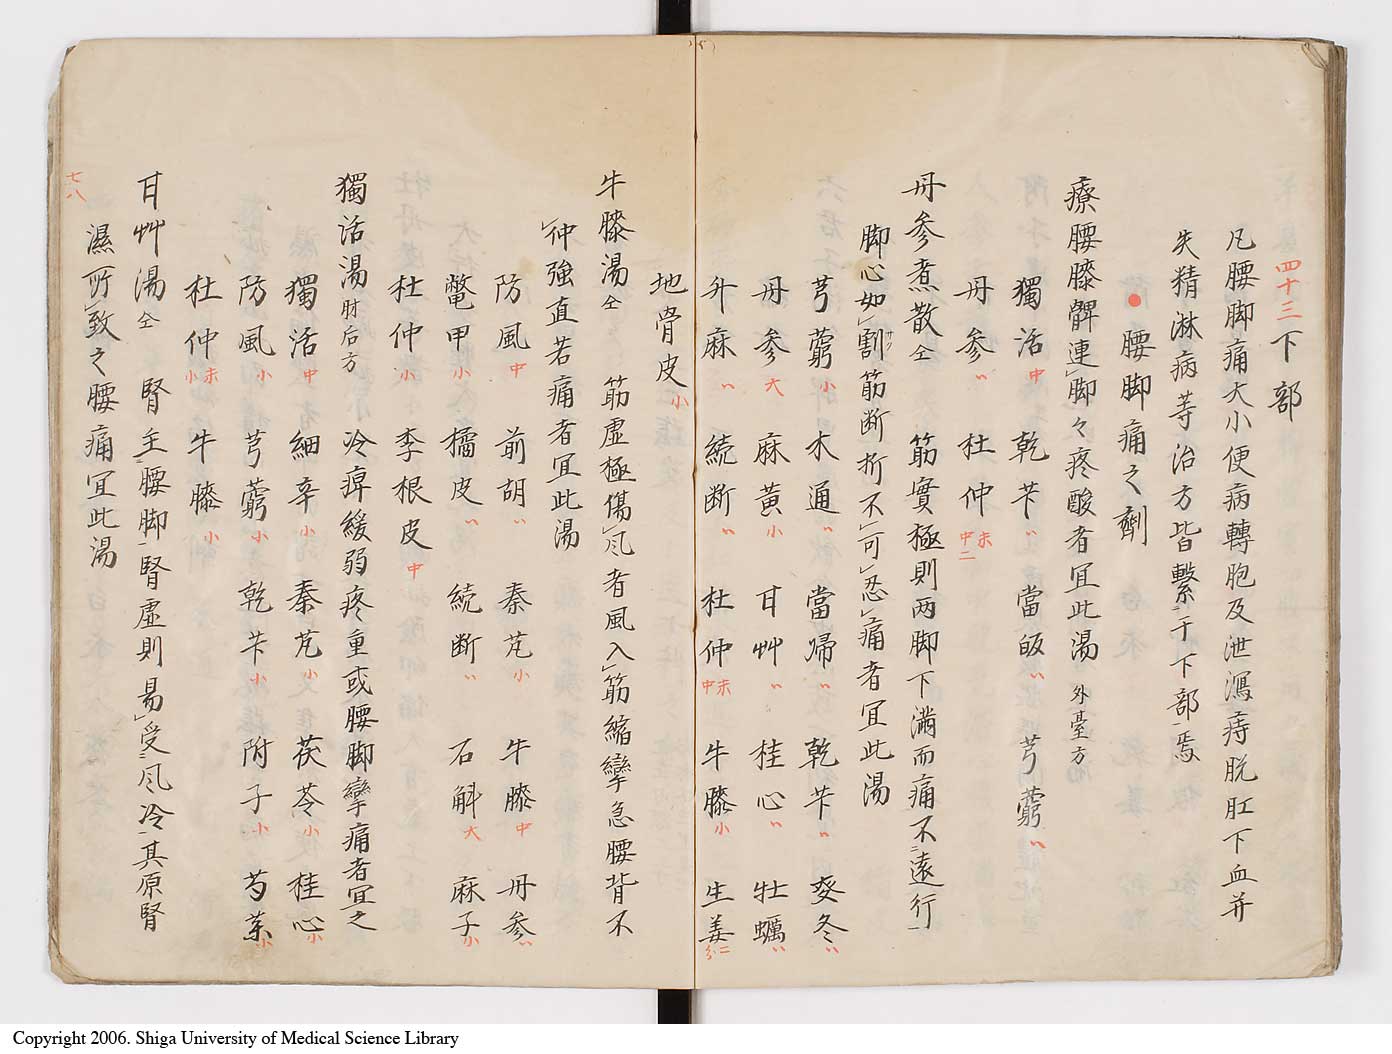 四十三下部
凡腰脚痛大小便病轉胞及泄瀉痔脱肛下血并
失精淋病等治方皆繫二于下部一焉
●腰脚痛之劑
療腰膝髀連レ脚々疼酸者宜此湯 外臺方
獨活中 乾芐〃 當皈〃 芎藭〃
丹参〃 杜仲中二未
丹参煮散仝 筋實極則两脚下満而痛不二遠行一
脚心如レ割サク筋断折不レ可レ忍レ痛者宜此湯
芎藭小 木通〃 當帰〃 乾芐〃 麥冬〃
丹参大 麻黄小 甘艸〃 桂心〃 牡蠣〃
升麻〃 続断〃 杜仲中未 牛膝小 生姜二分
地骨皮小
牛膝湯仝 筋虚極傷レ風者風入レ筋縮攣急腰背不
レ仲強直若痛者宜此湯
防風中 前胡〃 秦芃小 牛膝中 丹参〃
鼈甲小 橘皮〃 続断〃 石斛大 麻子小
杜仲小 李根皮中
獨活湯肘后方 冷痺緩弱疼重或腰脚攣痛者宜之
獨活中 細辛小 秦芃小 茯苓小 桂心小
防風小 芎藭小 乾芐小 附子小 芍薬小
杜仲小未 牛膝小
甘艸湯仝 腎主二腰脚一腎虚則易レ受二風冷一其原腎
濕所レ致之腰痛宜此湯
七八
Copyright 2006. Shiga University of Medical Science Library